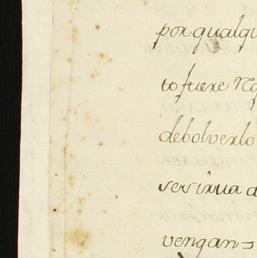 por qualqu
to fuere No
debolverlo
ser ixua a
vengan=